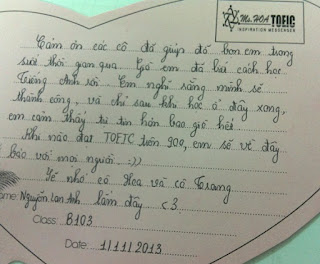 Ms. HOA TOEIC
INSPIRATION MESSENGER
Cảm ơn các cô đã giúp đỡ bọn em trong
suốt thời gian qua. Giờ em đã biết cách học
Tiếng Anh rồi. Em nghĩ rằng mình sẽ
thành công, và chỉ sau khi học ở đây xong,
em cảm thấy tự tin hơn bao giờ hết.
Khi nào đạt TOEIC trên 900, em sẽ về đây
báo với mọi người. =))
Sẽ nhớ cô Hoa và cô Trang
lắm đấy <3
ame: Nguyễn Lan Anh
Class: B103
Date: 1/11/2013